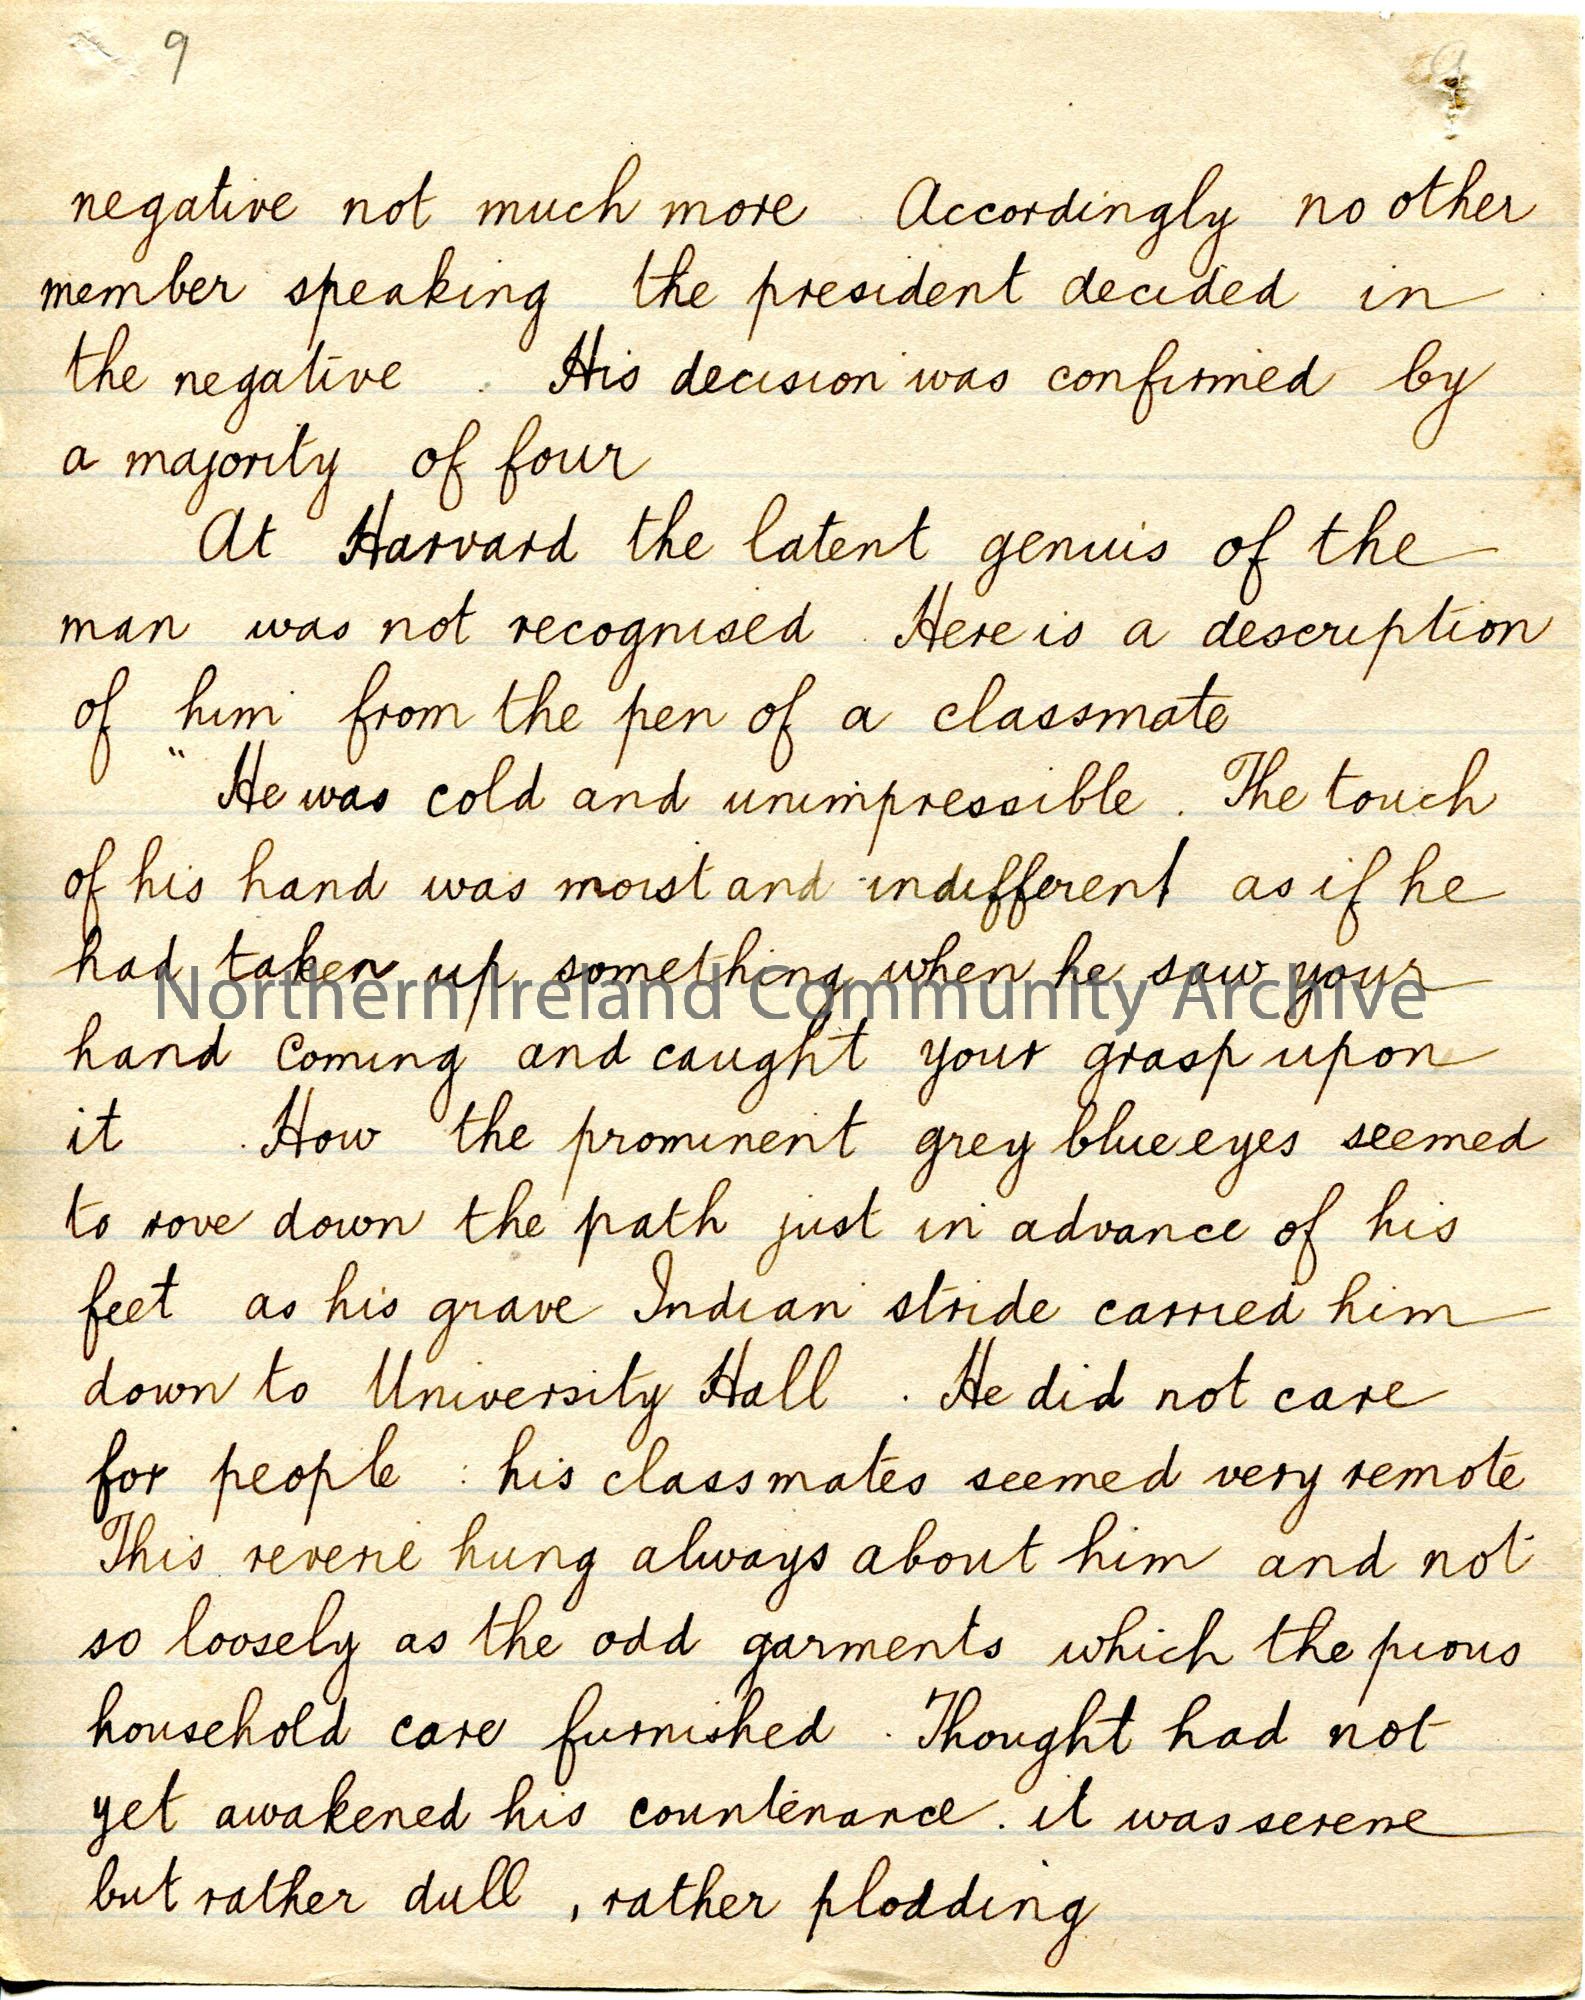 9
9
negative not much more. Accordingly no other
member speaking the president decided in
the negative. His decision was confirmed by
a majority of four
At Harvard the latent genius of the
man was not recognised. Here is a description
of him from the pen of a classmate
"He was cold and unimpressible. The touch
of his hand was moist and indifferent as if he
had taken up something when he saw your
Northern Ireland Community Archive
hand coming and caught your grasp upon
it. How the prominent grey blue eyes seemed
to rove down the path just in advance of his
feet as his grave Indian stride carried him
down to University Hall. He did not care
for people: his classmates seemed very remote
This reverie hung always about him and not
so loosely as the odd garments which the pious
household care furnished. Thought had not
yet awakened his countenance. it was serene
but rather dull, rather plodding